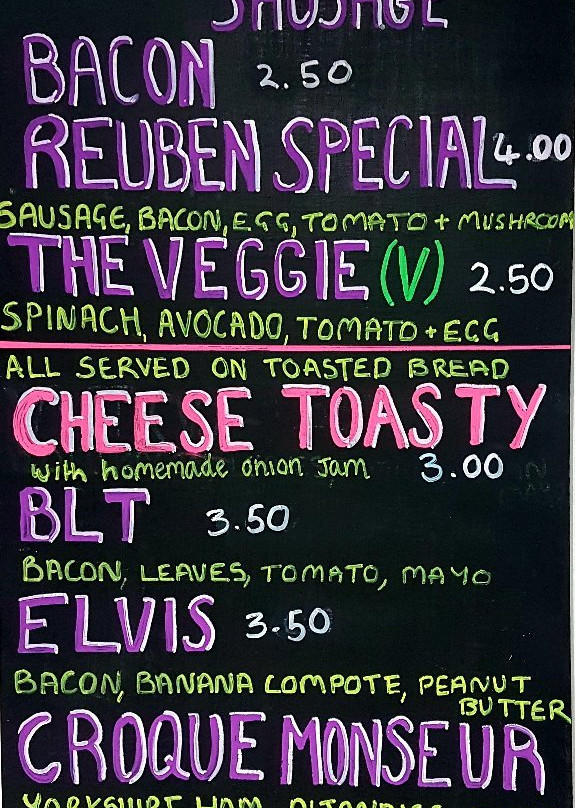 SAUSAGE
BACON 2.50
REUBEN SPECIAL 4.00
SAUSAGE, BACON, EGG, TOMATO + MUSHROOM
THE VEGGIE (V) 2.50
SPINACH, AVOCADO, TOMATO + EGG
ALL SERVED ON TOASTED BREAD
CHEESE TOASTY
with homemade onion jam 3.00
BLT 3.50
BACON, LEAVES, TOMATO, MAYO
ELVIS 3.50
BACON, BANANA COMPOTE, PEANUT
BUTTER
CROQUE MONSEUR
YORKSHIRE HAM,